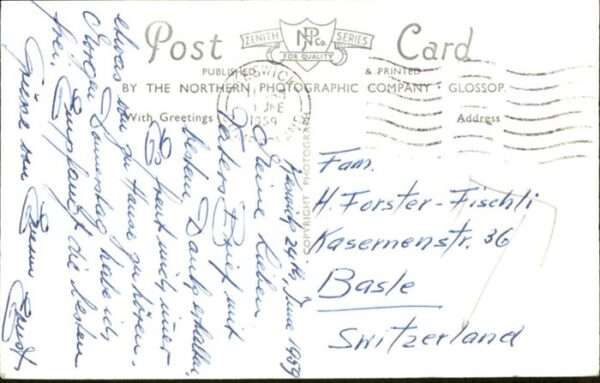 Post Card
ZENITH SERIES
NPCo.
FOR QUALITY
PUBLISHED & PRINTED
BY THE NORTHERN PHOTOGRAPHIC COMPANY · GLOSSOP.
With Greetings
Address
COPYRIGHT PHOTOGRAPH
KESWICK
1959
Keswick, 24th June 1959
Meine Lieben
Vaters Brief mit
bestem Dank erhalten.
Es freut mich immer
etwas von zu Hause zu hören.
Morgen Donnerstag habe ich
frei. Empfangt die besten
Grüsse von
Fam.
H. Forster-Fischli
Kasernenstr. 36
Basle
Switzerland